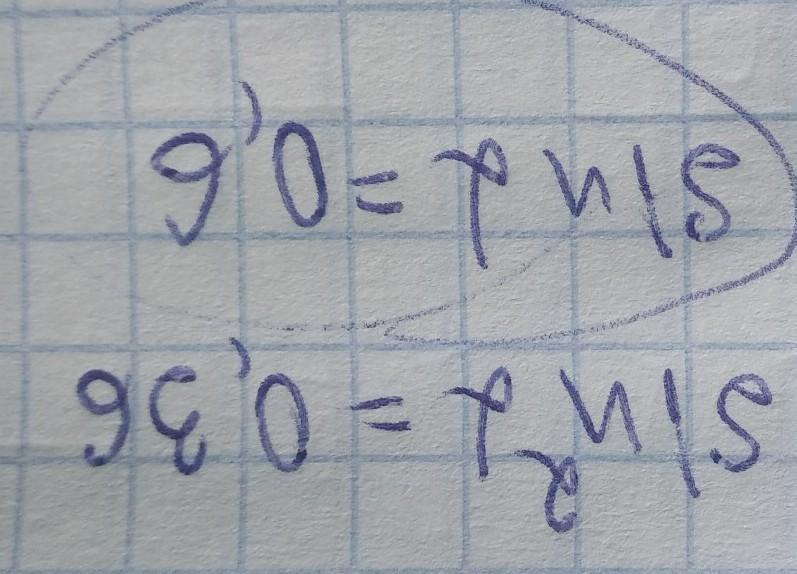 sin²α = 0,36
sin α = 0,6